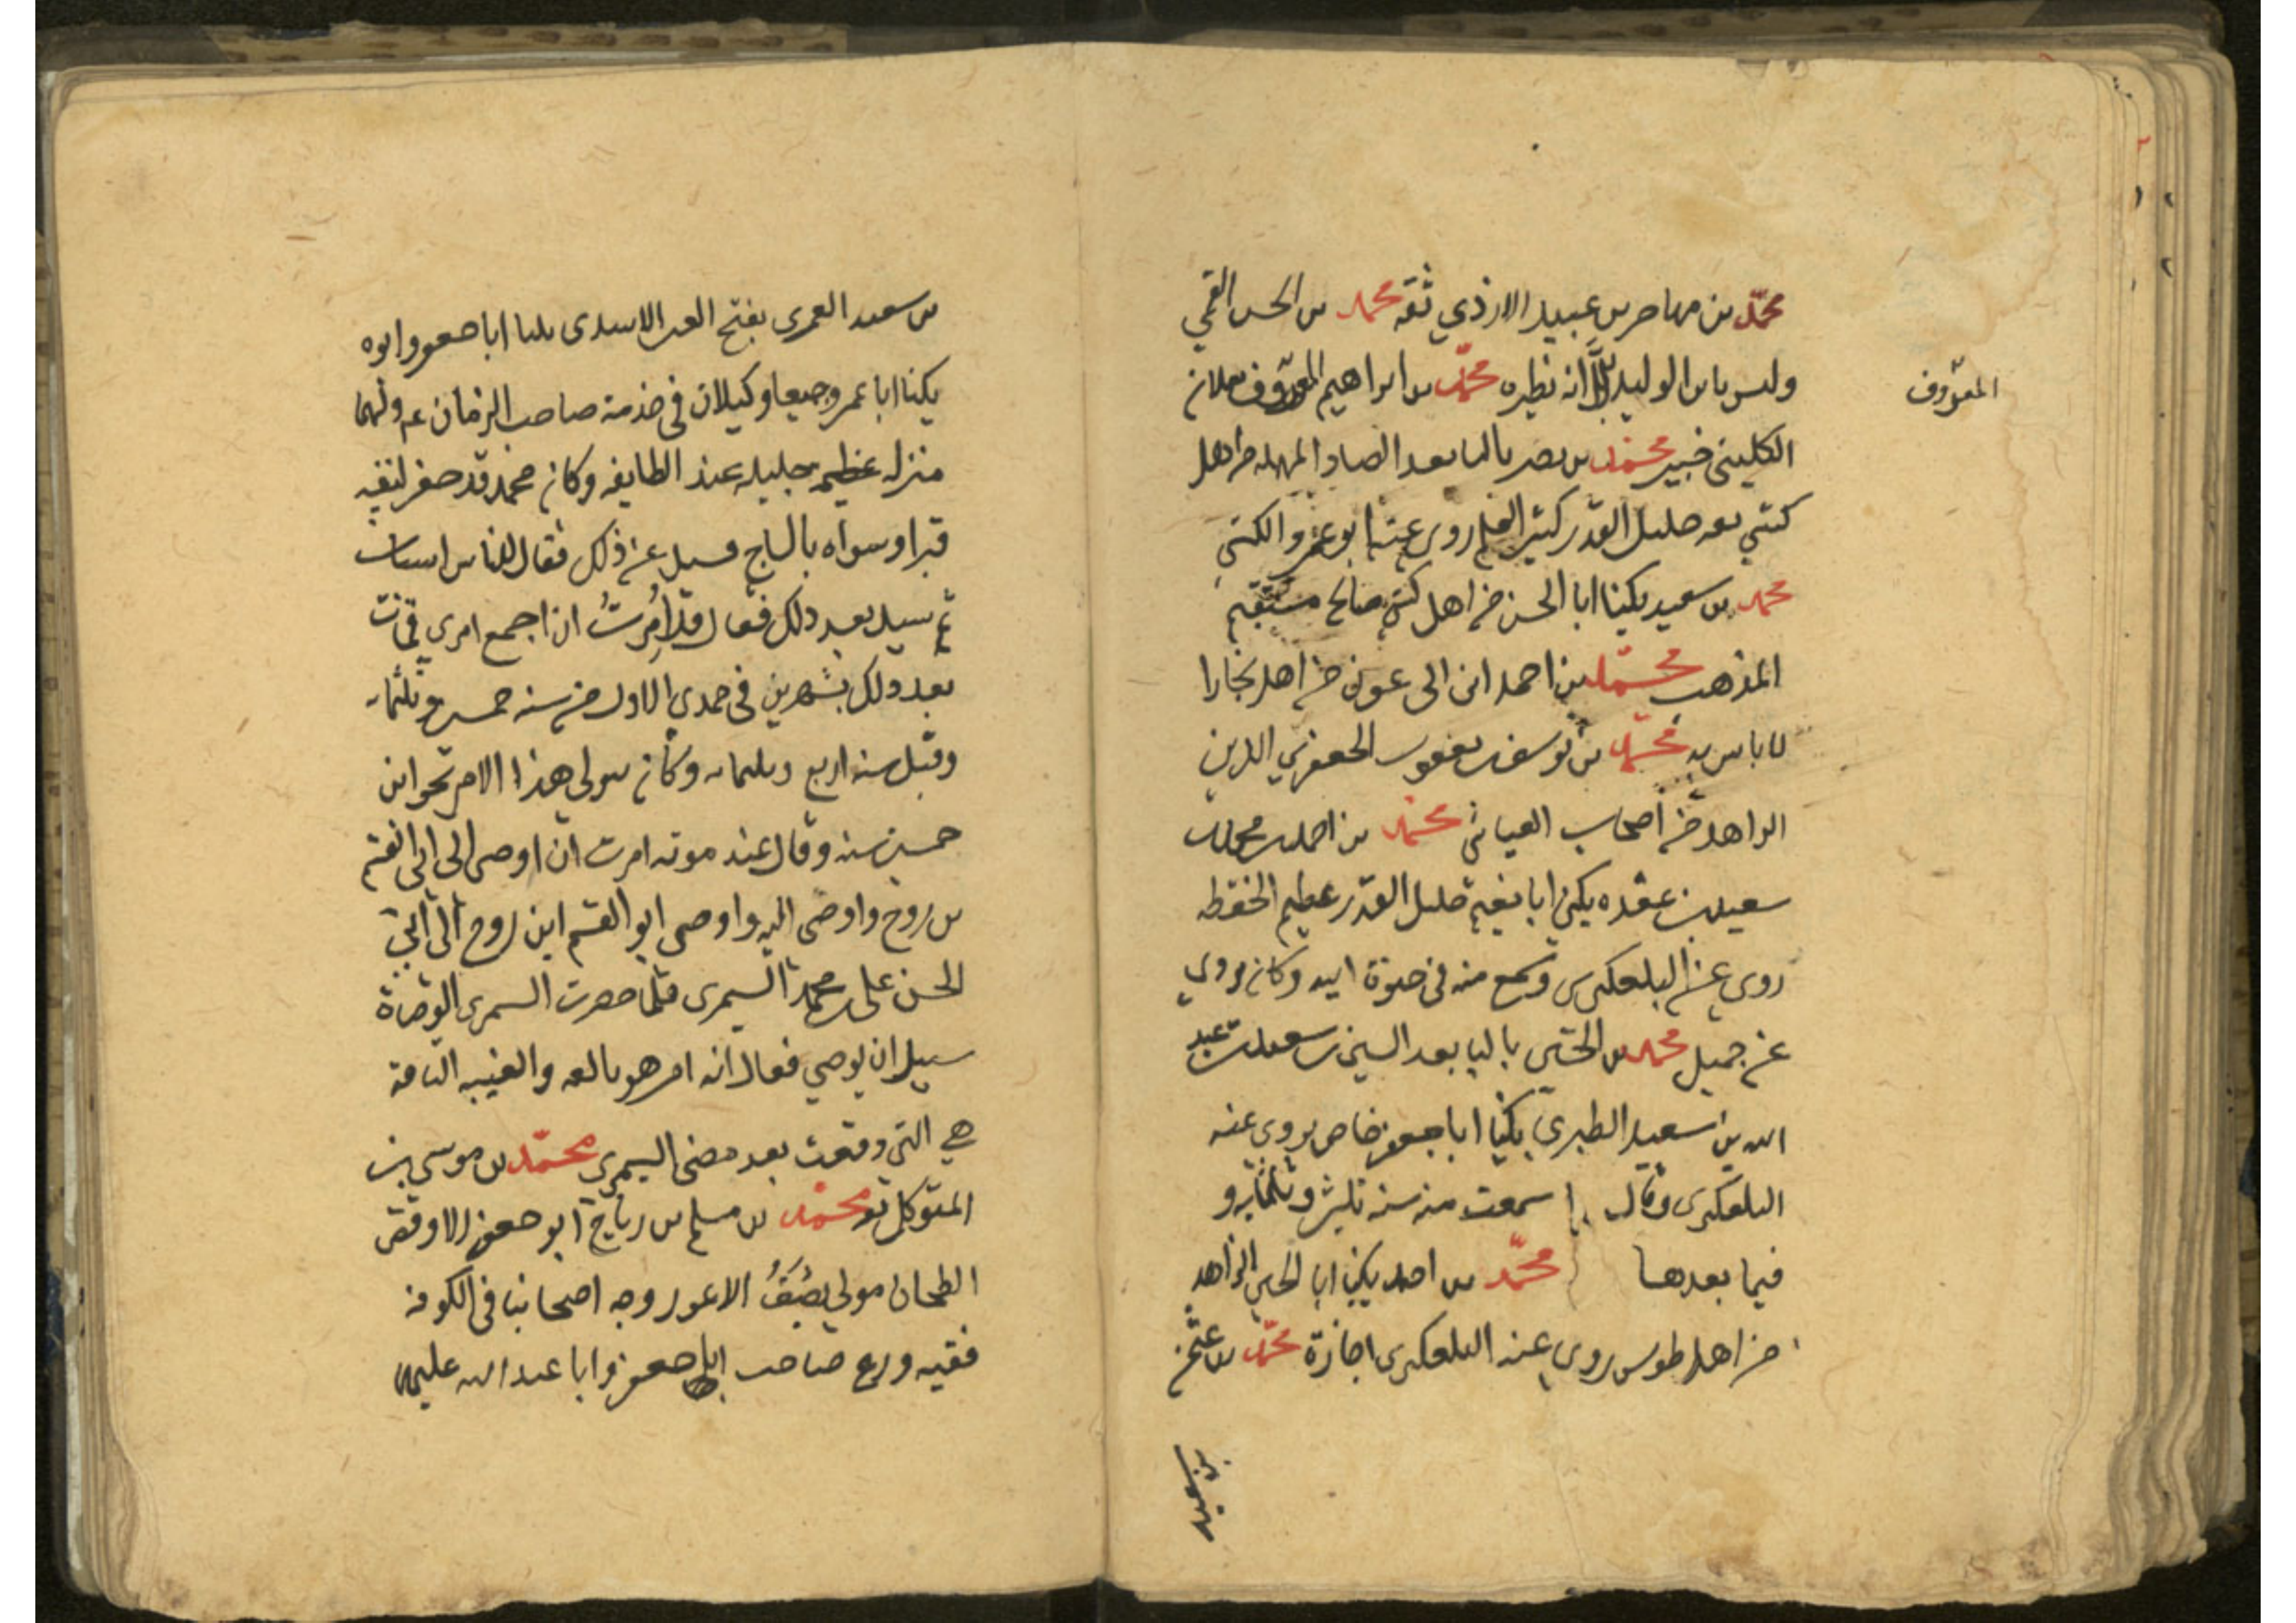 محمّد بن مهاجر بن عبيد الازدي ثقه محمد بن الحسن القمي
وليس بابن الوليد الا انه نظيره محمّد بن ابراهيم المعروف بعلان
المعرّوف
الكليني خيير محمد بن نصر بالنا بعد الصاد المهمله من اهل
كشي ثقه جليل القدر كثير العلم روى عنه ابو عمرو الكشي
محمد بن سعيد يكنا ابا الحسن من اهل كش صالح مستقيم
المذهب محمّد بن احمد ابن ابى عوف من اهل بخارا
لا باس به محمّد بن يوسف بن يعقوب الجعفري الدين
الزاهد من أصحاب العياشي محمّد بن احمد بن محمد بن
سعيد بن عقده يكنى ابا نعيم جليل القدر عظيم الحفظه
روى عنه التلعكبرى وسمع منه في حيوة ابيه وكان يروي
عن حميل محمد بن الحسين باليا بعد السين بن سعيد بن عبد
الله بن سعيد الطبري يكنا ابا جعفر خاص يروى عنه
التلعكبرى وقال سمعت منه سنه ثلثين وثلثمايه و
فيما بعدها محمّد بن احمد يكنى ابا الحسن الزاهد
من اهل طوس روى عنه التلعكبرى اجازة محمّد بن عثمن
بن سعيد
بن سعيد العمرى بفتح العين الاسدى يكنا ابا جعفر وابوه
يكنا ابا عمرو جميعا وكيلان في خدمة صاحب الزمان عم ولهما
منزله عظيمه جليله عند الطايفه وكان محمد قد حفر لنفسه
قبرا وسواه بالساج فسيل عن ذلك فقال للناس اسباب
ثم سيل بعد ذلك فقال قد اُمِرتُ ان اجمع امرى فمات
بعد ذلك بشهرين في جمدي الاول من سنه خمس وثلثمايه
وقيل سنه اربع وثلثمايه وكان يتولى هذا الامر نحوا من
خمسين سنه وقال عند موته امرت ان اوصى الى ابى القسم
بن روح واوصى اليه واوصى ابو القسم ابن روح الى ابى
الحسن على بن محمد السمرى فلما حضرت السمرى الوفاة
سيل ان يوصي فقال لله امر هو بالغه والغيبه التامة
هي التي وقعت بعد مضى السمرى محمّد بن موسى بن
المتوكل ثقه محمّد بن مسلم بن رباح ابو جعفر الاوقص
الطحان مولى ثقيف الاعور وجه اصحابنا في الكوفه
فقيه ورع صاحب ابا جعفر وابا عبد الله عليهما